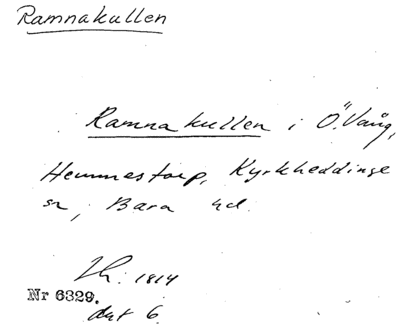 Ramnakullen
Ramnakullen i Ö. Vång,
Hemmestorp, Kyrkheddinge
sn, Bara hd.
1814
Nr 6329.
6